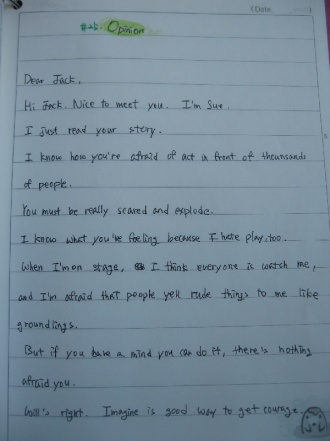 (Date
#25. Opinion
Dear Jack.
Hi Jack. Nice to meet you. I'm Sue.
I just read your story.
I know how you're afraid of act in front of thounsands
of people.
You must be really scared and explode.
I know what you're feeling because I hate play, too.
When I'm on stage, I think everyone is watch me,
and I'm afraid that people yell rude things to me like
groundlings.
But if you have a mind you can do it, there's nothing
afraid you.
Will's right. Imagine is good way to get courage.